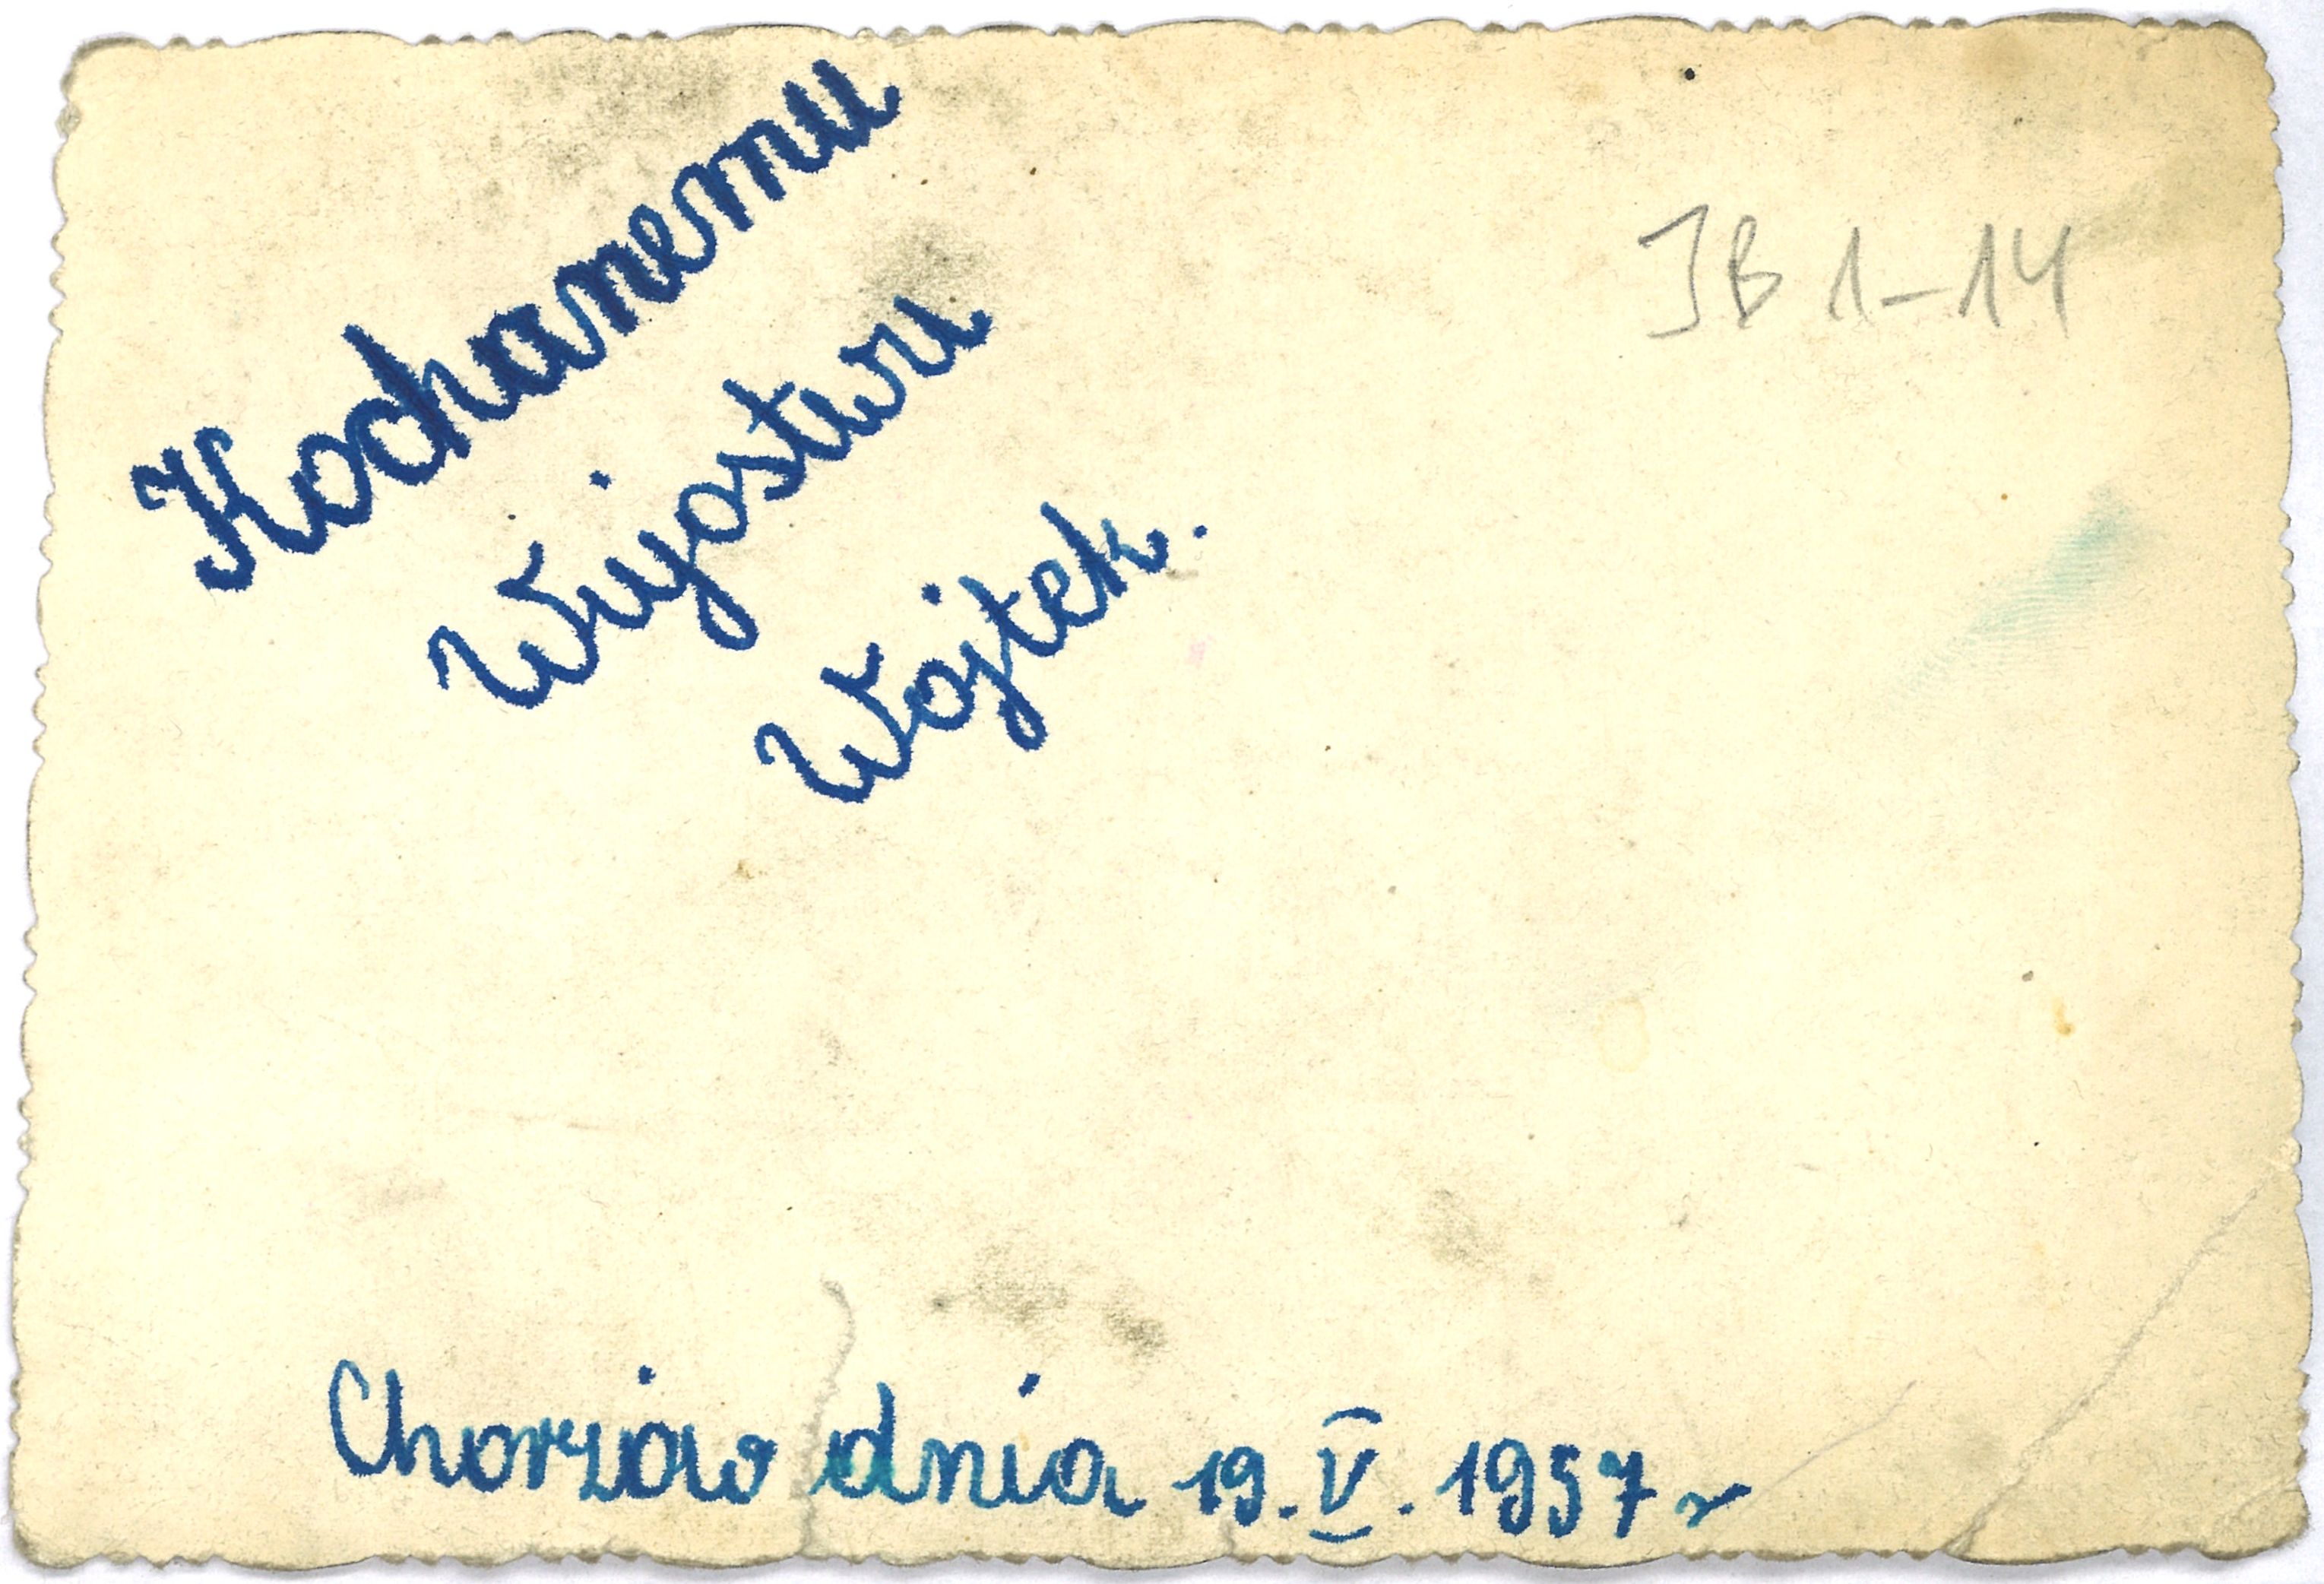 Kochanemu
Wujostwu
Wojtek.
JB 1-14
Chorzów dnia 19.V.1957r